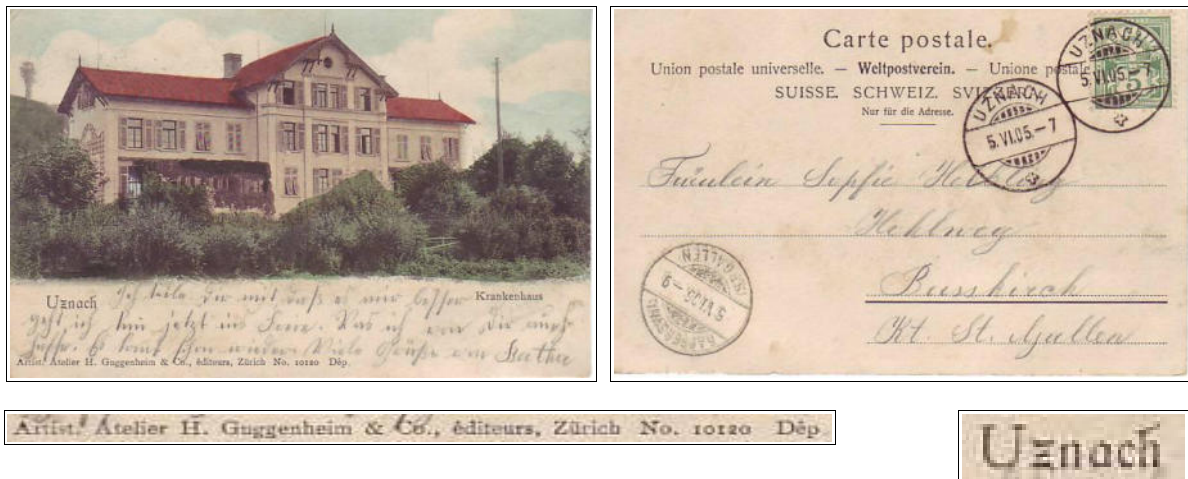 Uznach
Krankenhaus
Ich teile dir mit daß es mir besser
geht ich kann jetzt ins Freie. Was ich von Dir auch
hoffe. Es kommt schon wieder Viele Grüße von Bertha
Artist. Atelier H. Guggenheim & Co., éditeurs, Zürich No. 10120 Dép.
Carte postale.
Union postale universelle. — Weltpostverein. — Unione postale
SUISSE. SCHWEIZ. SVIZZERA.
Nur für die Adresse.
UZNACH
5.VI.05.–7
UZNACH
5.VI.05.–7
5
Fräulein Sophie Helbling
Busskirch
Kt. St. Gallen
(ST. GALLEN)
5.VI.05.–9
RAPPERSWIL
Artist. Atelier H. Guggenheim & Co., éditeurs, Zürich No. 10120 Dép
Uznach